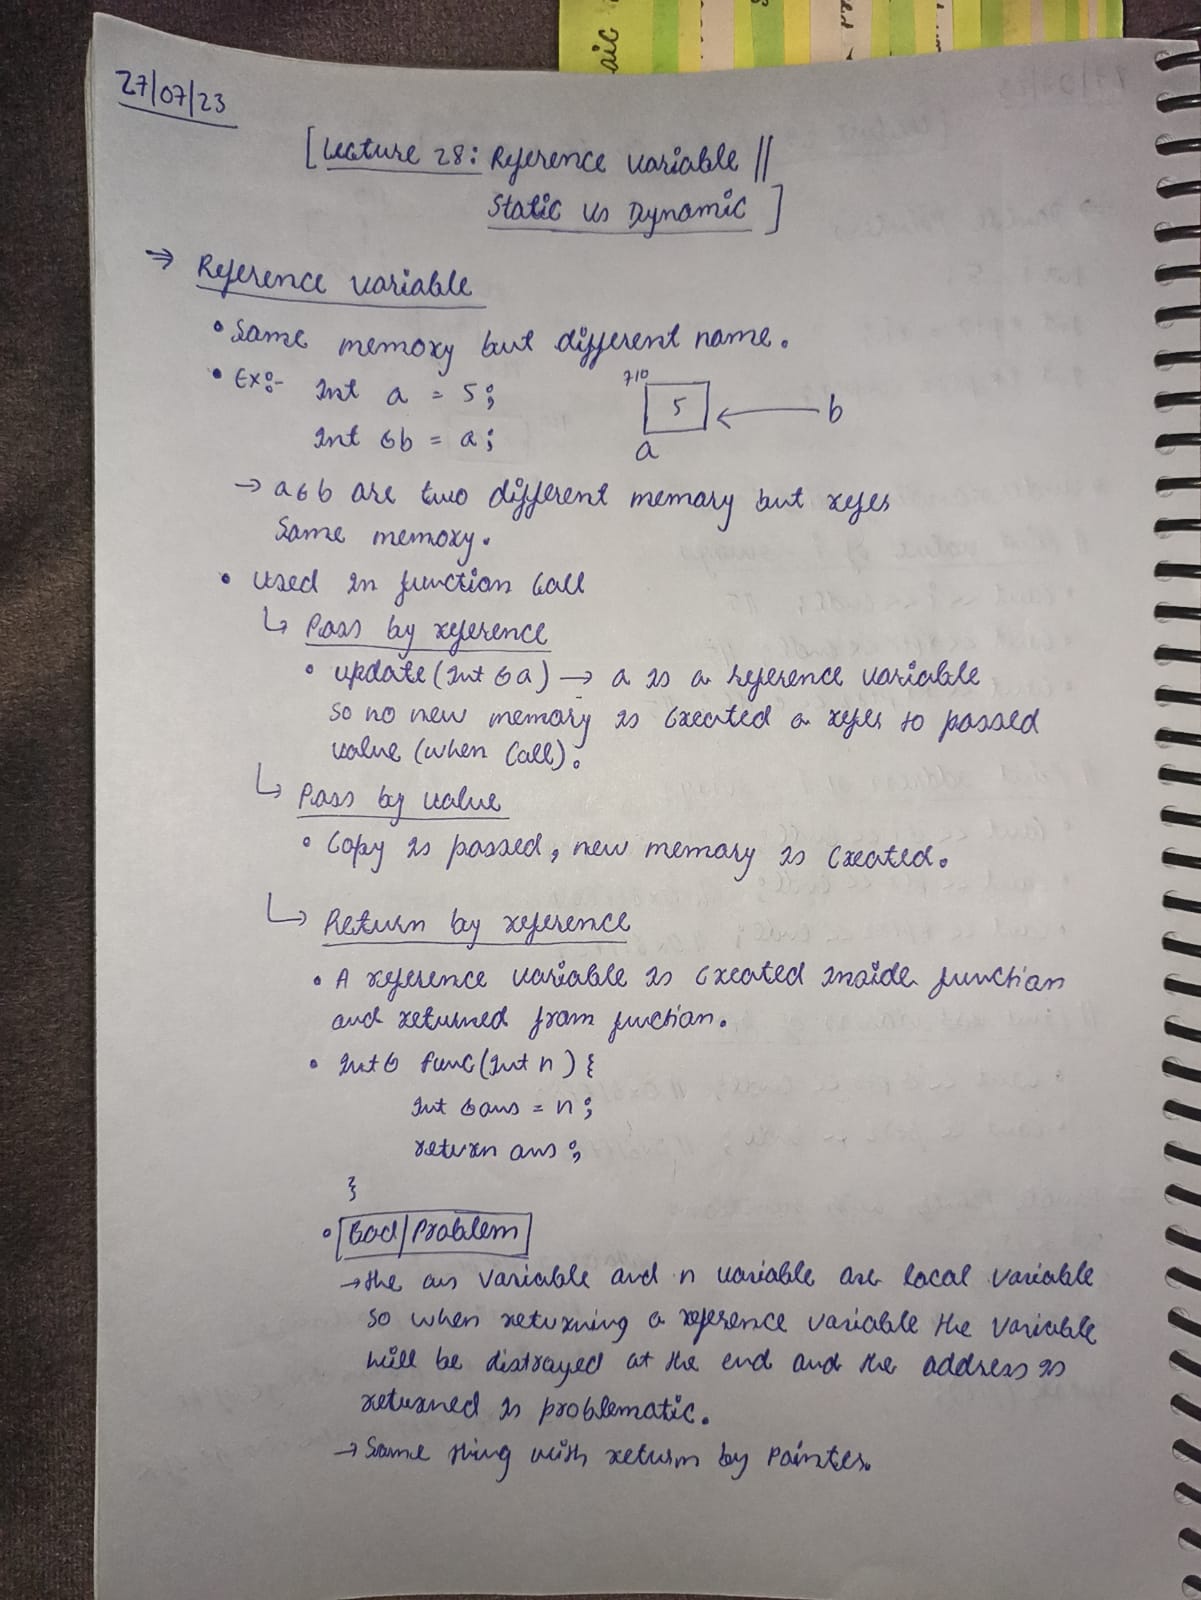 aic
27/07/23
[Lecture 28: Reference variable ||
Static vs Dynamic]
⇒ Reference variable
• Same memory but different name.
• Ex:- Int a = 5;
710
5
b
Int &b = a;
a
→ a & b are two different memory but refes
Same memory.
• Used in function Call
↳ Pass by reference
• update(int &a) → a is a reference variable
so no new memory is created a refes to passed
value (when Call).
↳ Pass by value
• Copy is passed, new memory is created.
↳ Return by reference
• A reference variable is created inside function
and returned from function.
• Int& func(int n) {
Int &ans = n;
return ans;
}
• Bad/Problem
→ the ans variable and n variable are local variable
so when returning a reference variable the variable
will be distrayed at the end and the address is
returned is problematic.
→ Same thing with return by Pointer.